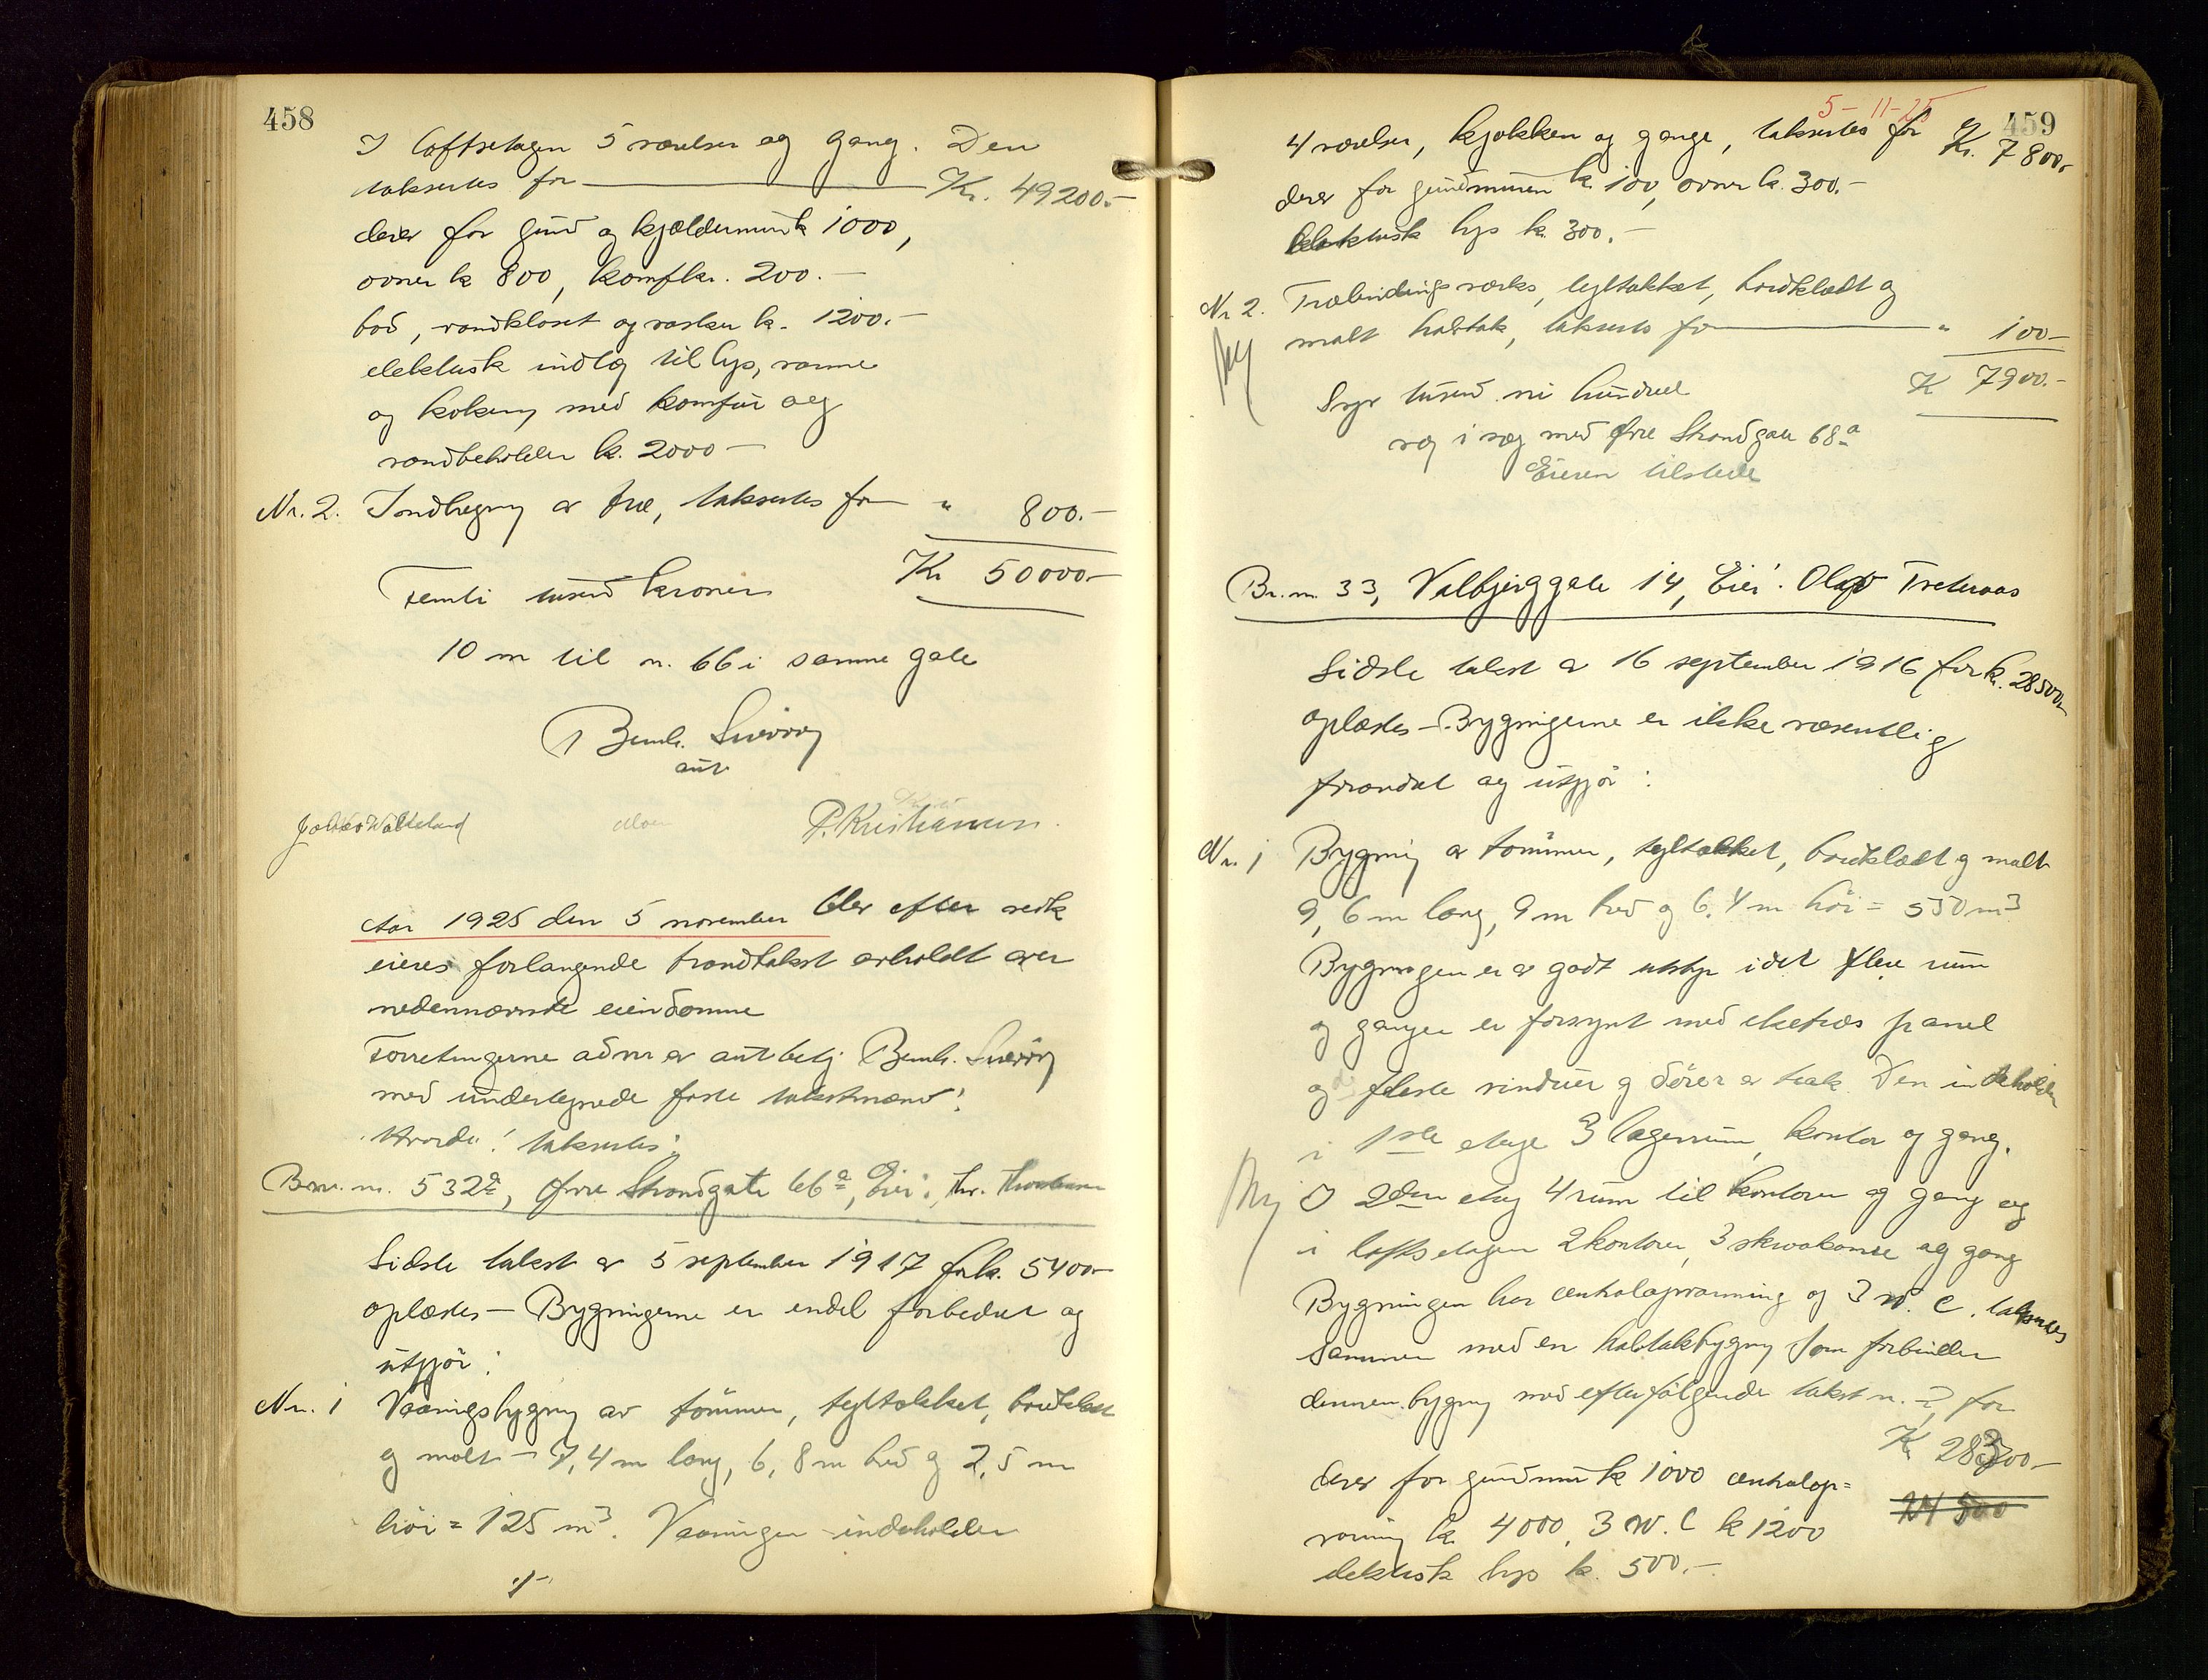 458
I loftsetagen 5 værelser og gang. Den
taksertes for Kr. 49200.-
derav for grund og kjældermur k 1000,
ovner k 800, komf kr. 200.-
bad, vandkloset og vasker k. 1200.-
elektrisk indlæg til lys, varme
og kokning med komfur og
vandbeholder k. 2000-
Nr. 2. Indhegning av træ, taksertes for " 800.-
Kr 50000.-
Femti tusend kroner
10 m til nr. 66 i samme gate
Bernh. Sverdrup
aut
P. Kristiansen.
Aar 1925 den 5 november blev efter vedk
eieres forlangende brandtakst avholdt over
nedennævnte eiendomme
Forretningerne adm av aut betj Bernh.
med undertegnede faste takstmænd!
Hvorda! taksertes:
Br. nr. 532a, Øvre Strandgate 66a, Eier:
Sidste takst av 5 september 1917 for k. 5400-
oplæstes - Bygningerne er endel forbedret og
utgjør:
Nr. 1 Vaaningsbygning av tømmer, tegltækket, bordklædt
og malt - 7,4 m lang, 6,8 m bred og 2,5 m
høi = 125 m3. Vaaningen indeholder
./-
5-11-25
459
4 værelser, kjøkken og gange, taksertes for Kr. 7800.-
derav for grundmuren k. 100, ovner k. 300.-
elektrisk lys k. 300.-
Nr 2. Træbindingsverks, tegltækket, bordklædt og
malt halvtak, taksertes for " 100-
K 7900.-
Syv tusend ni hundrede
væg i væg med Øvre Strandgate 68a
Eieren tilstede
Br. nr. 33, Valbjerggate 14, Eier: Olav Tveteraas
Sidste takst av 16 september 1916 for k. 28500.-
oplæstes - Bygningerne er ikke væsentlig
forandret og utgjør:
Nr. 1 Bygning av tømmer, tegltækket, bordklædt og malt
9,6 m lang, 9 m bred og 6,4 m høi = 550 m3
Bygningen er av godt utstyr idet flere rum
og ganger er forsynt med eketræs panel
og fleste vinduer og dører av teak. Den indeholder
i 1ste etage 3 lagerrum, kontor og gang.
I 2den etag 4 rum til kontorer og gang og
i loftsetagen 2 kontorer, 3 skraakamre og gang
Bygningen har centralopvarmning og 3 W.C. taksertes
sammen med en halvtakbygning som forbinder
denne bygning med efterfølgende takst nr. 2, for
Kr 28300-
derav for grundmur k 1000 centralop=
24500
varming k. 4000, 3 W.C k 1200
elektrisk lys k. 500.-